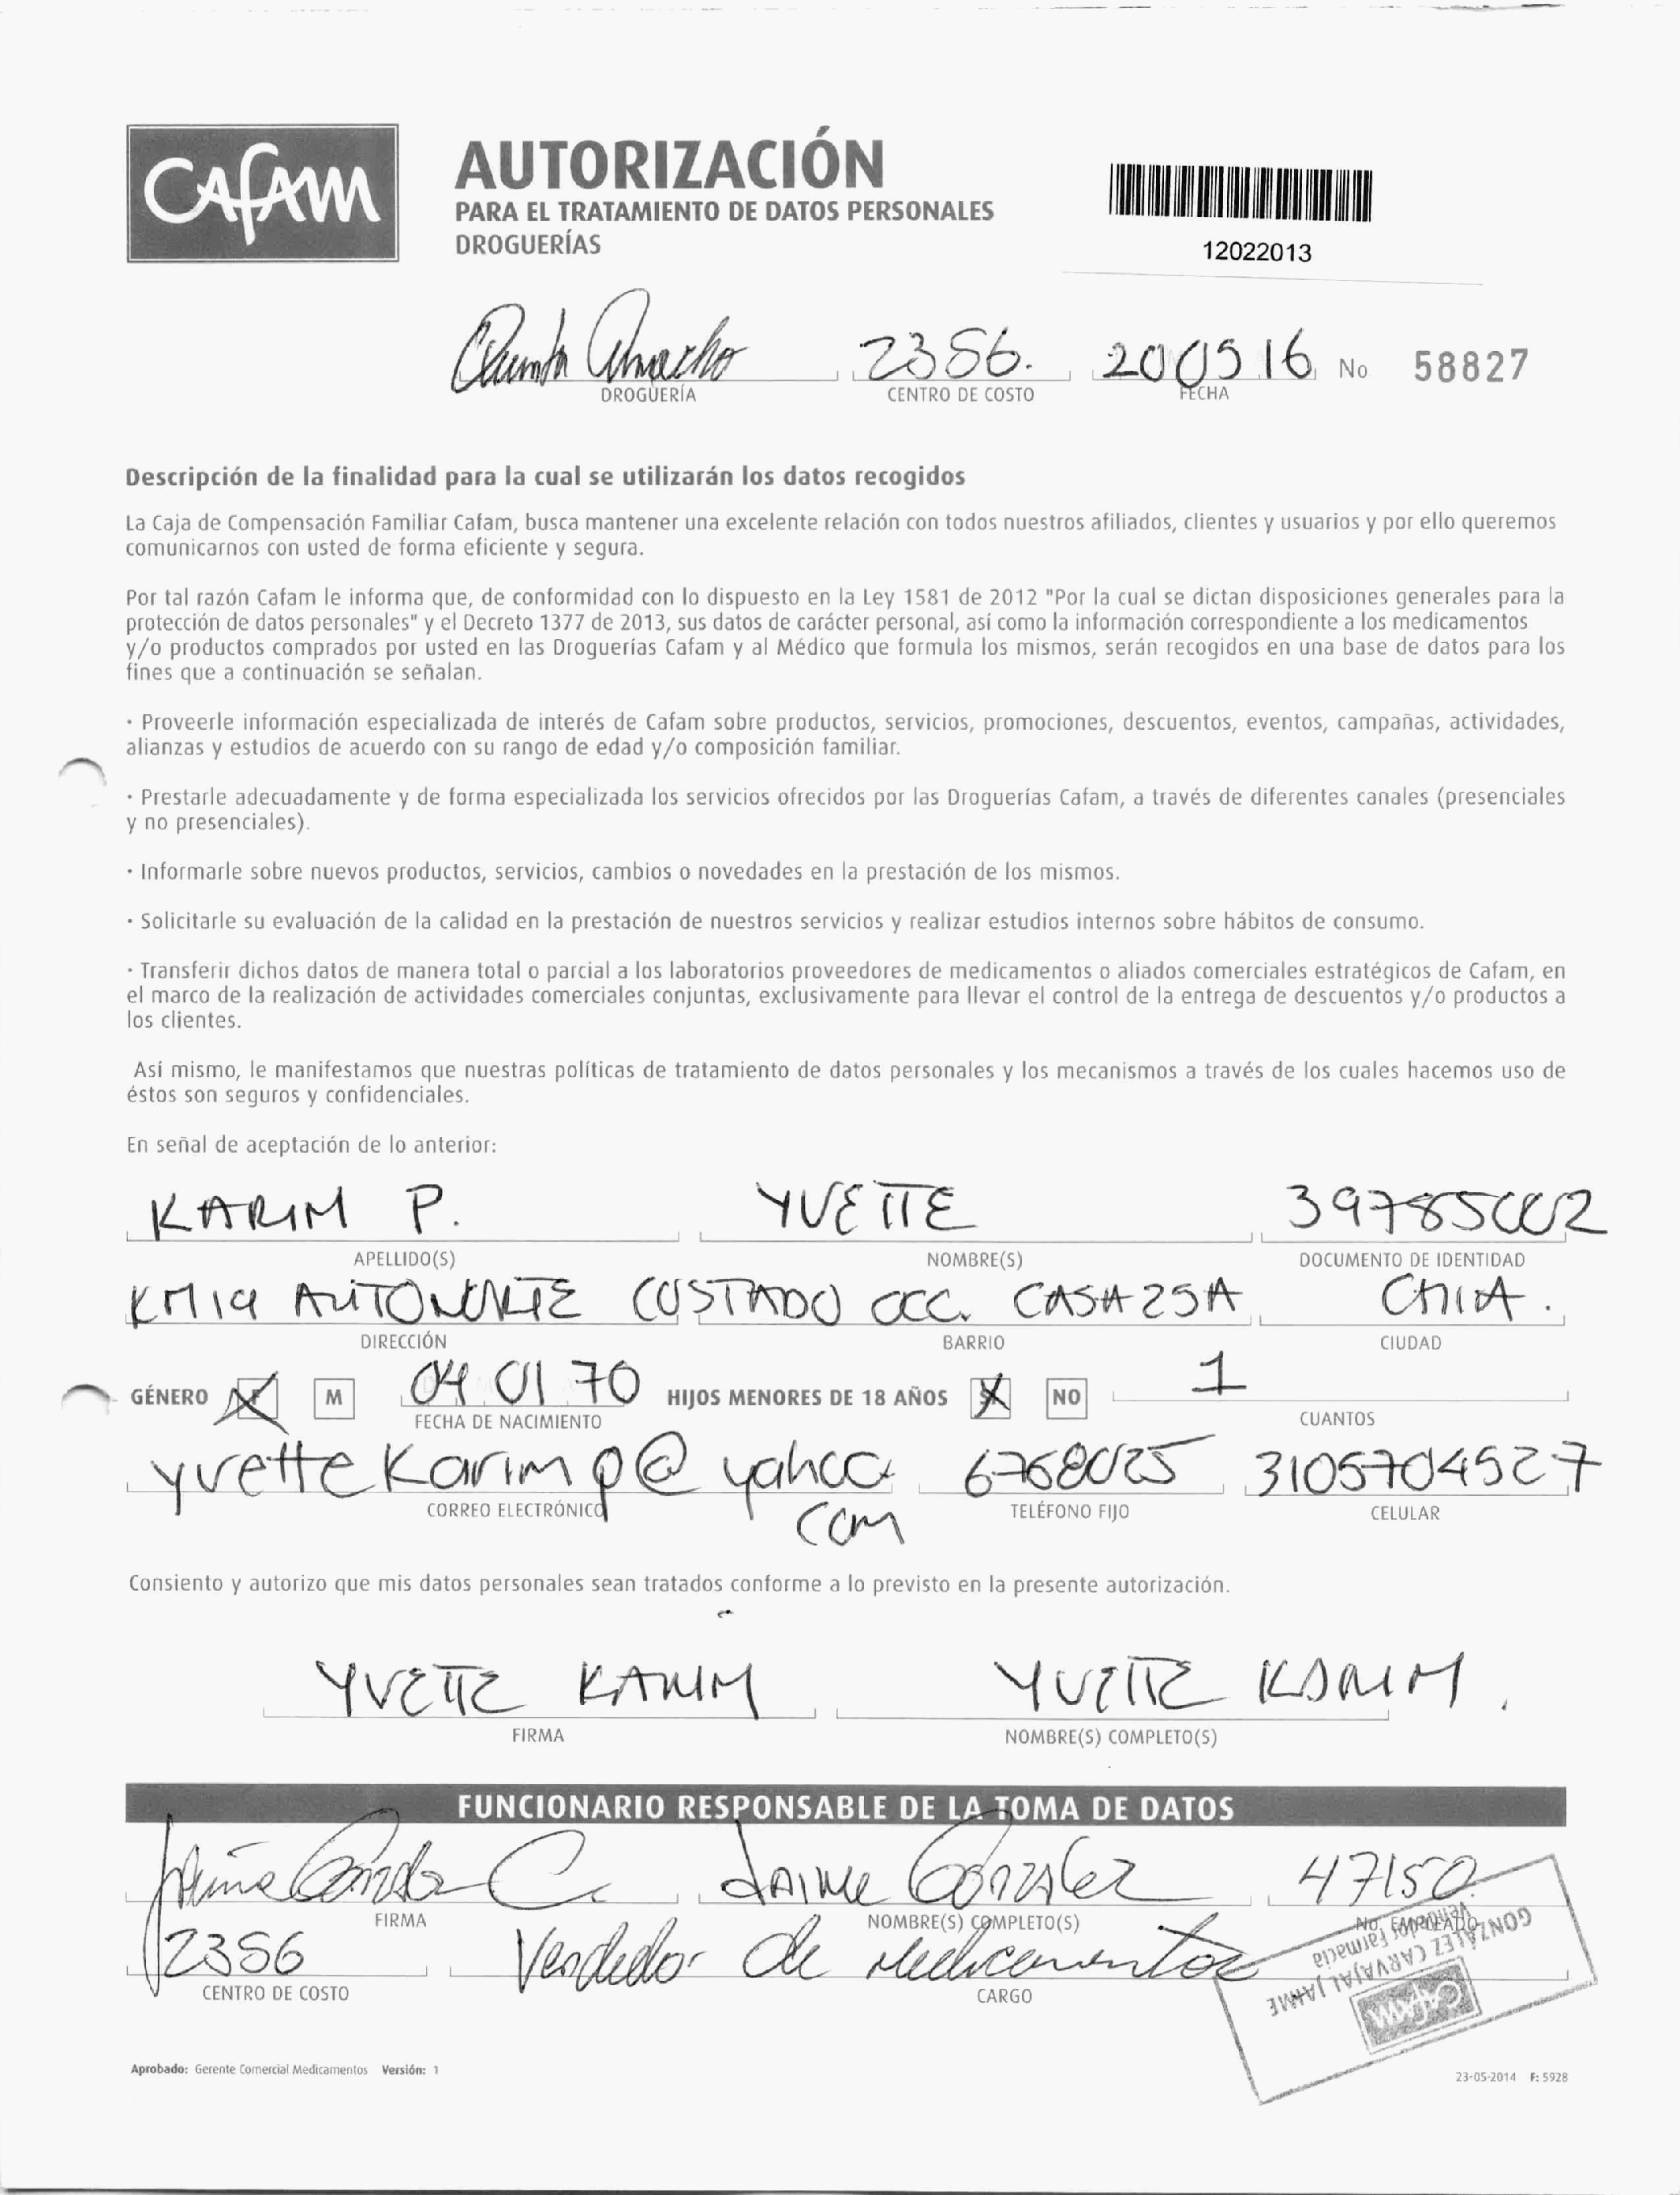 CAFAM
AUTORIZACIÓN
PARA EL TRATAMIENTO DE DATOS PERSONALES
DROGUERÍAS
12022013
2356. 200516 No 58827
DROGUERÍA CENTRO DE COSTO FECHA
Descripción de la finalidad para la cual se utilizarán los datos recogidos
La Caja de Compensación Familiar Cafam, busca mantener una excelente relación con todos nuestros afiliados, clientes y usuarios y por ello queremos
comunicarnos con usted de forma eficiente y segura.
Por tal razón Cafam le informa que, de conformidad con lo dispuesto en la Ley 1581 de 2012 "Por la cual se dictan disposiciones generales para la
protección de datos personales" y el Decreto 1377 de 2013, sus datos de carácter personal, así como la información correspondiente a los medicamentos
y/o productos comprados por usted en las Droguerías Cafam y al Médico que formula los mismos, serán recogidos en una base de datos para los
fines que a continuación se señalan.
· Proveerle información especializada de interés de Cafam sobre productos, servicios, promociones, descuentos, eventos, campañas, actividades,
alianzas y estudios de acuerdo con su rango de edad y/o composición familiar.
· Prestarle adecuadamente y de forma especializada los servicios ofrecidos por las Droguerías Cafam, a través de diferentes canales (presenciales
y no presenciales).
· Informarle sobre nuevos productos, servicios, cambios o novedades en la prestación de los mismos.
· Solicitarle su evaluación de la calidad en la prestación de nuestros servicios y realizar estudios internos sobre hábitos de consumo.
· Transferir dichos datos de manera total o parcial a los laboratorios proveedores de medicamentos o aliados comerciales estratégicos de Cafam, en
el marco de la realización de actividades comerciales conjuntas, exclusivamente para llevar el control de la entrega de descuentos y/o productos a
los clientes.
Así mismo, le manifestamos que nuestras políticas de tratamiento de datos personales y los mecanismos a través de los cuales hacemos uso de
éstos son seguros y confidenciales.
En señal de aceptación de lo anterior:
KARIM P. YVETTE 39785002
APELLIDO(S) NOMBRE(S) DOCUMENTO DE IDENTIDAD
KM19 AUTONORTE COSTADO OCC. CASA 25A CHIA.
DIRECCIÓN BARRIO CIUDAD
GÉNERO F M 04 01 70 HIJOS MENORES DE 18 AÑOS SI NO 1
FECHA DE NACIMIENTO CUANTOS
yvettekarimp@yahoo 6768025 3105704527
com
CORREO ELECTRÓNICO TELÉFONO FIJO CELULAR
Consiento y autorizo que mis datos personales sean tratados conforme a lo previsto en la presente autorización.
YVETTE KARIM YVETTE KARIM.
FIRMA NOMBRE(S) COMPLETO(S)
FUNCIONARIO RESPONSABLE DE LA TOMA DE DATOS
Jaime González C. JAIME GONZALEZ 47150
FIRMA NOMBRE(S) COMPLETO(S) No. EMPLEADO
2356 Vendedor de Medicamentos
CENTRO DE COSTO CARGO
GONZÁLEZ CARVAJAL JAIME
Vendedor Farmacia
CAFAM
Aprobado: Gerente Comercial Medicamentos Versión: 1
23-05-2014 F: 5928